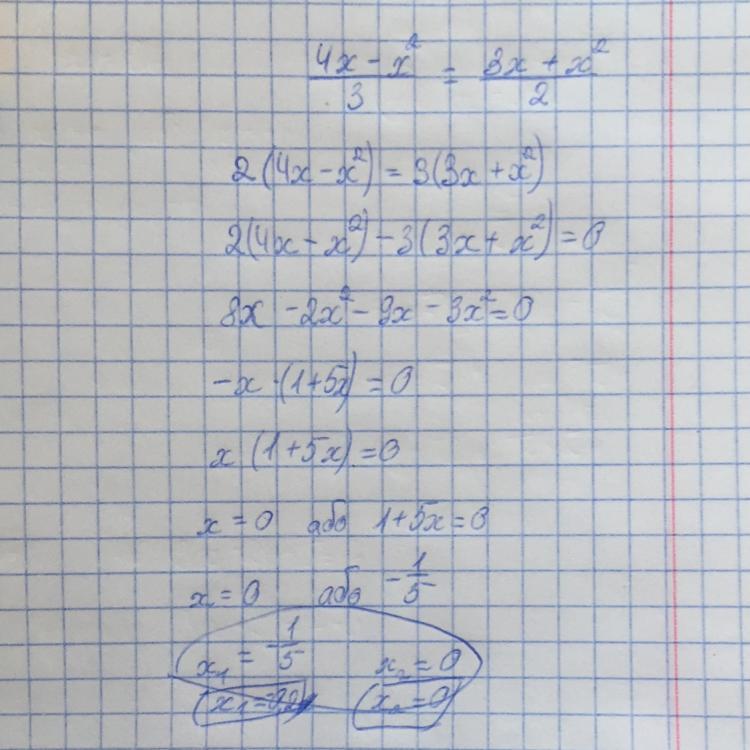 (4x - x²)/3 = (3x + x²)/2
2(4x - x²) = 3(3x + x²)
2(4x - x²) - 3(3x + x²) = 0
8x - 2x² - 9x - 3x² = 0
-x · (1+5x) = 0
x (1+5x) = 0
x = 0 або 1+5x = 0
x = 0 або -1/5
x₁ = -1/5 x₂ = 0
x₂ = 0